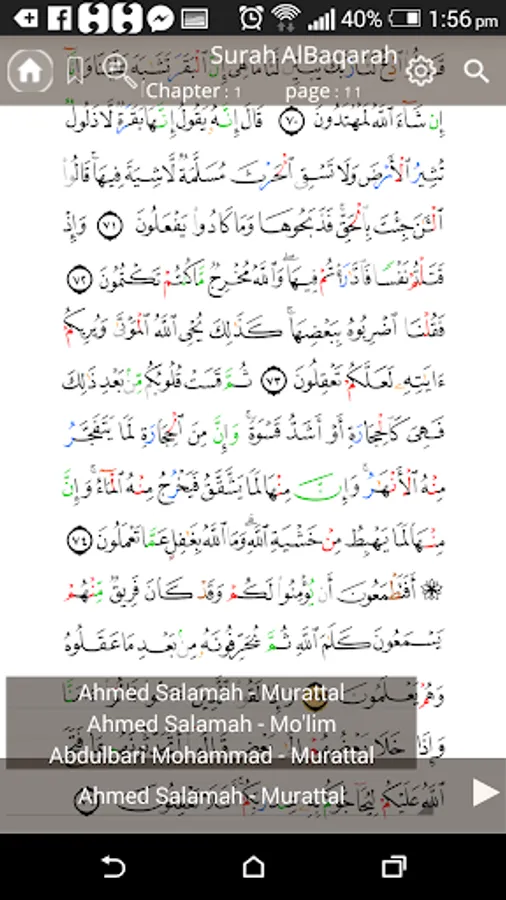 40% 1:56 pm
Surah AlBaqarah
Chapter : 1 page : 11
إِن شَآءَ ٱللَّهُ لَمُهْتَدُونَ ٧٠ قَالَ إِنَّهُۥ يَقُولُ إِنَّهَا بَقَرَةٌ لَّا ذَلُولٌ
تُثِيرُ ٱلْأَرْضَ وَلَا تَسْقِى ٱلْحَرْثَ مُسَلَّمَةٌ لَّا شِيَةَ فِيهَا ۚ قَالُوا۟
ٱلْـَٔـٰنَ جِئْتَ بِٱلْحَقِّ ۚ فَذَبَحُوهَا وَمَا كَادُوا۟ يَفْعَلُونَ ٧١ وَإِذْ
قَتَلْتُمْ نَفْسًا فَٱدَّٰرَْٰٔتُمْ فِيهَا ۖ وَٱللَّهُ مُخْرِجٌ مَّا كُنتُمْ تَكْتُمُونَ ٧٢
فَقُلْنَا ٱضْرِبُوهُ بِبَعْضِهَا ۚ كَذَٰلِكَ يُحْىِ ٱللَّهُ ٱلْمَوْتَىٰ وَيُرِيكُمْ
ءَايَـٰتِهِۦ لَعَلَّكُمْ تَعْقِلُونَ ٧٣ ثُمَّ قَسَتْ قُلُوبُكُم مِّنۢ بَعْدِ ذَٰلِكَ
فَهِىَ كَٱلْحِجَارَةِ أَوْ أَشَدُّ قَسْوَةً ۚ وَإِنَّ مِنَ ٱلْحِجَارَةِ لَمَا يَتَفَجَّرُ
مِنْهُ ٱلْأَنْهَـٰرُ ۚ وَإِنَّ مِنْهَا لَمَا يَشَّقَّقُ فَيَخْرُجُ مِنْهُ ٱلْمَآءُ ۚ وَإِنَّ
مِنْهَا لَمَا يَهْبِطُ مِنْ خَشْيَةِ ٱللَّهِ ۗ وَمَا ٱللَّهُ بِغَـٰفِلٍ عَمَّا تَعْمَلُونَ ٧٤
۞ أَفَتَطْمَعُونَ أَن يُؤْمِنُوا۟ لَكُمْ وَقَدْ كَانَ فَرِيقٌ مِّنْهُمْ
يَسْمَعُونَ كَلَـٰمَ ٱللَّهِ ثُمَّ يُحَرِّفُونَهُۥ مِنۢ بَعْدِ مَا عَقَلُوهُ
وَهُمْ يَعْلَمُونَ
Ahmed Salamah - Murattal
Ahmed Salamah - Mo'lim
Abdulbari Mohammad - Murattal
Ahmed Salamah - Murattal